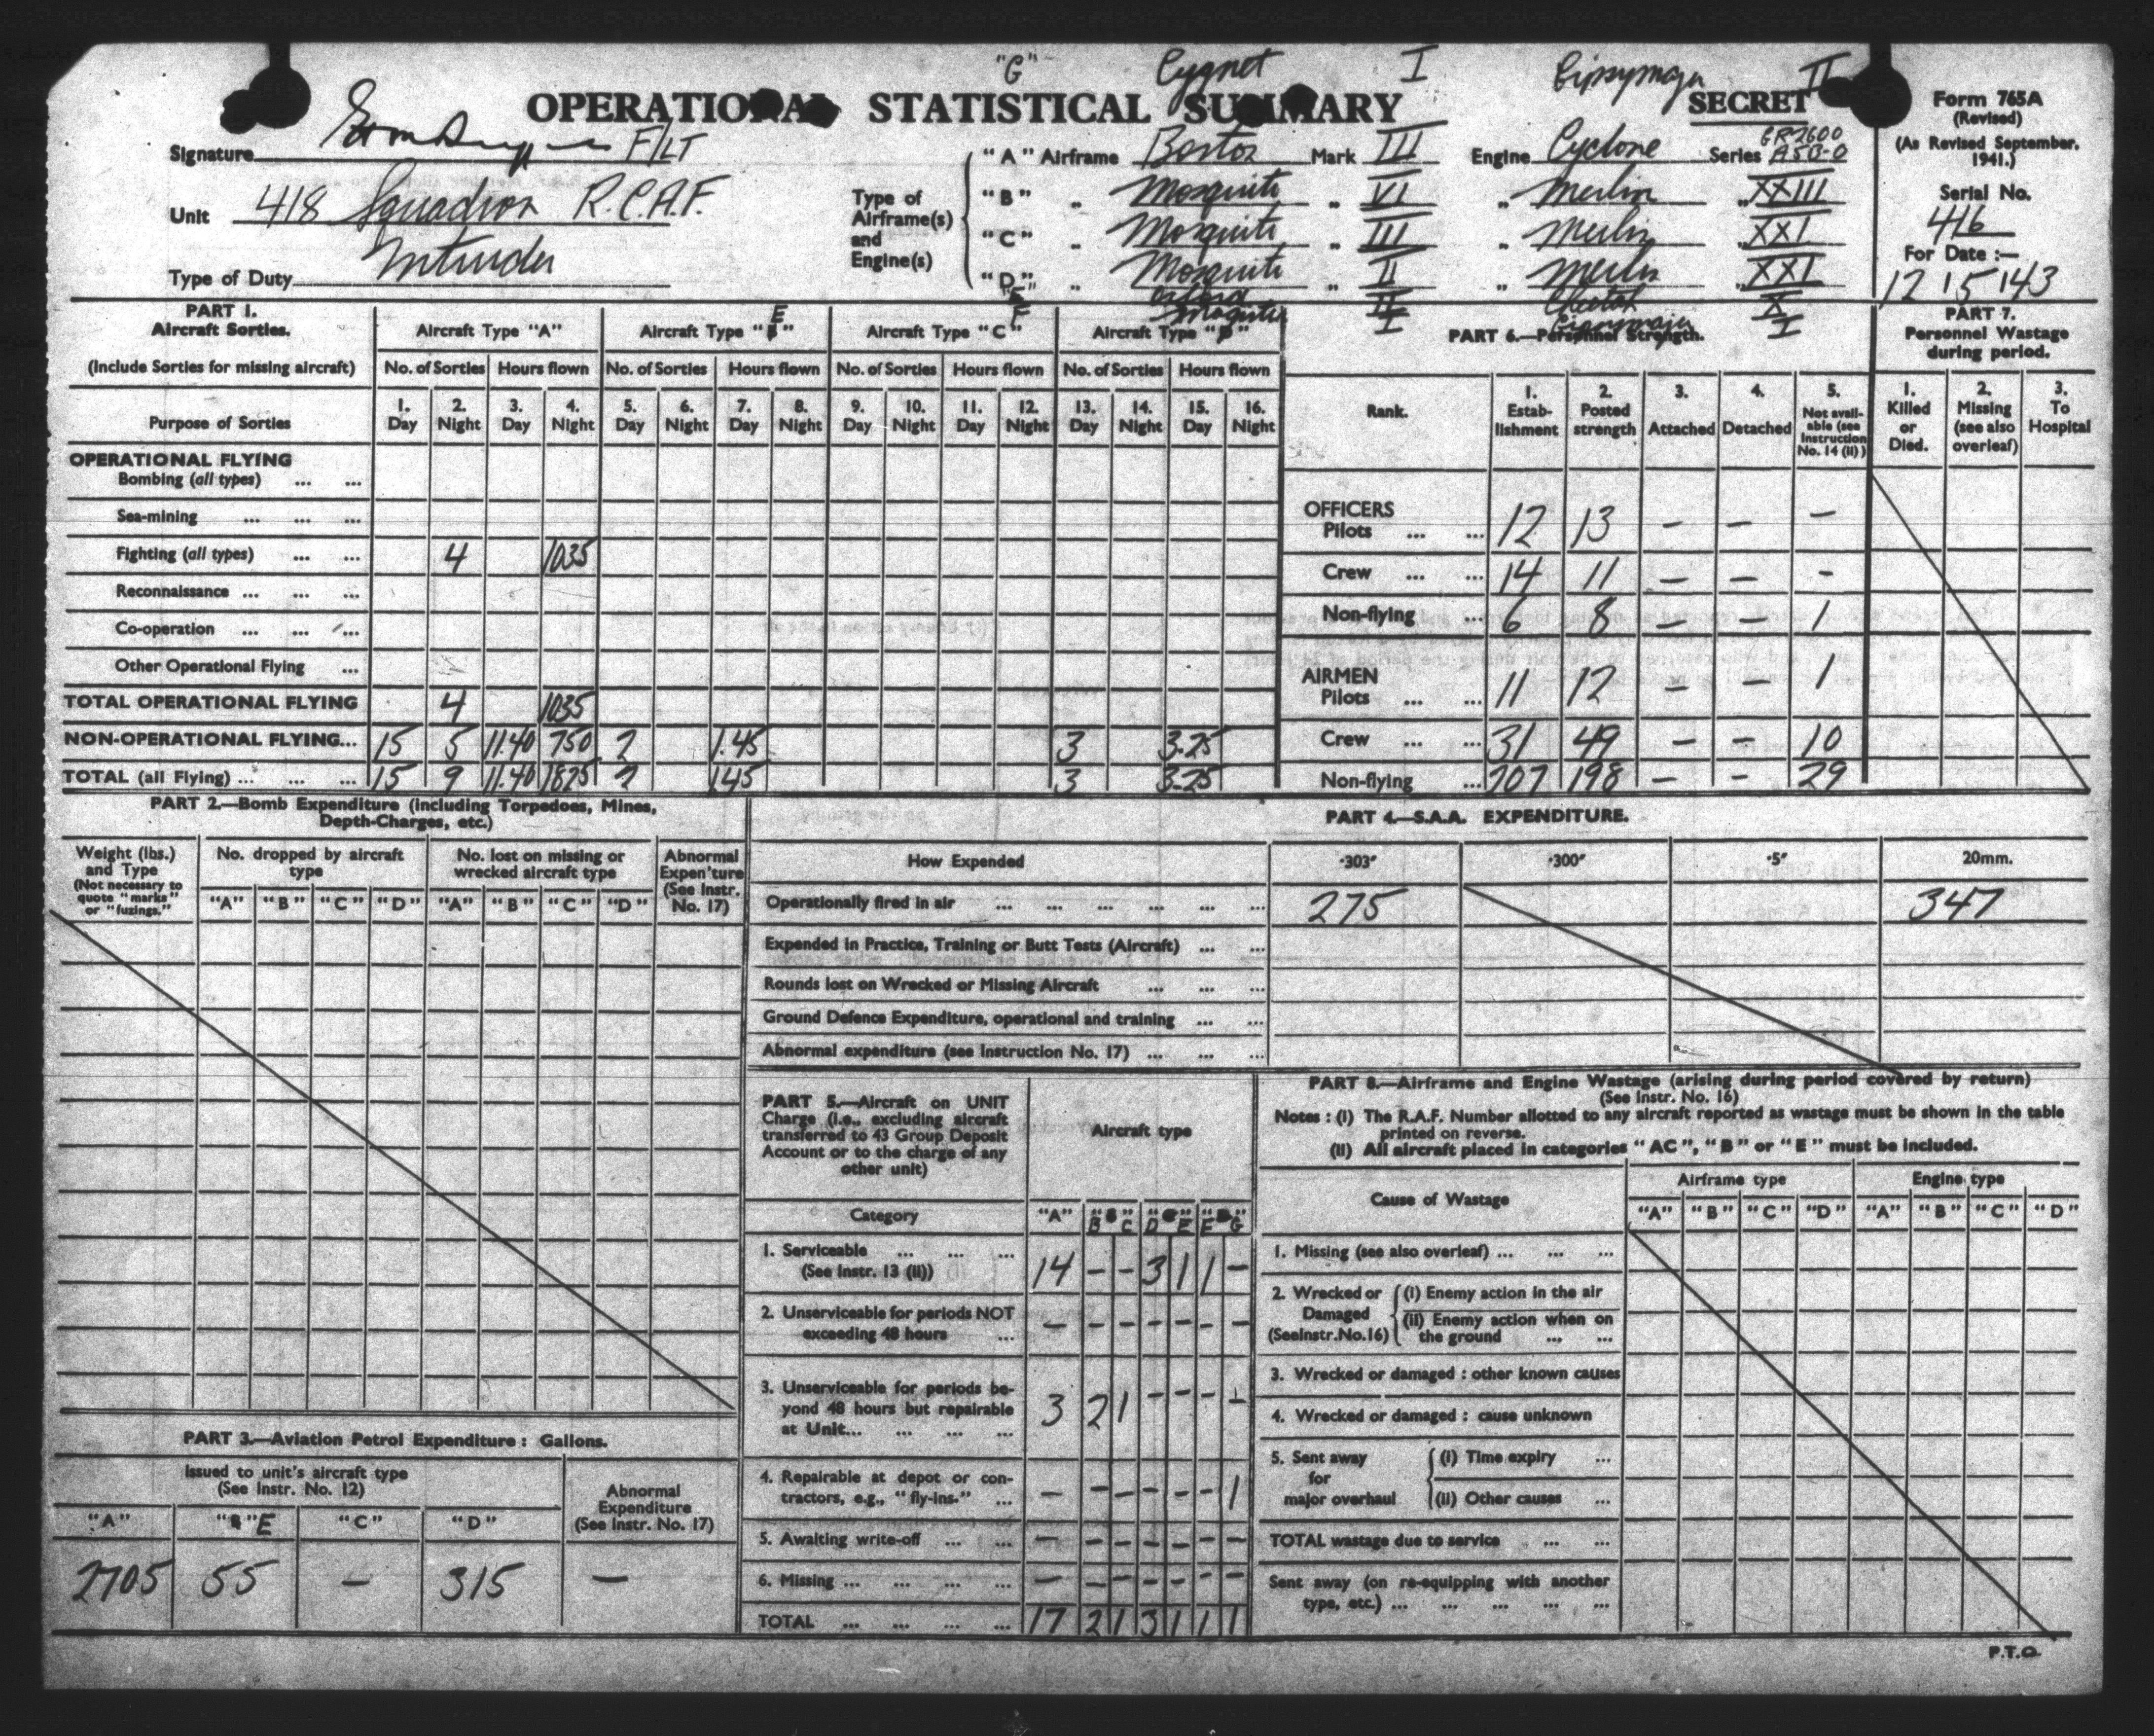 "G" Cygnet I Gipsymajor II
OPERATIONAL STATISTICAL SUMMARY
SECRET
Form 765A
(Revised)
(As Revised September, 1941.)
Serial No.
416
For Date :—
12/5/43
Signature F/LT
Unit 418 Squadron R.C.A.F.
Type of Duty Intruder
Type of Airframe(s) and Engine(s)
"A" Airframe Boston Mark III Engine Cyclone Series GR2600 A5B-0
"B" „ Mosquito „ VI „ Merlin „ XXIII
"C" „ Mosquito „ III „ Merlin „ XXI
"D" „ Mosquito „ II „ Merlin „ XXI
"E" Oxford II Cheetah X
F Magister I Gipsymajor I
PART 1.
Aircraft Sorties.
(Include Sorties for missing aircraft)
Aircraft Type "A" Aircraft Type "E" Aircraft Type "C" Aircraft Type "D"
No. of Sorties Hours flown No. of Sorties Hours flown No. of Sorties Hours flown No. of Sorties Hours flown
Purpose of Sorties
1. Day 2. Night 3. Day 4. Night 5. Day 6. Night 7. Day 8. Night 9. Day 10. Night 11. Day 12. Night 13. Day 14. Night 15. Day 16. Night
OPERATIONAL FLYING
Bombing (all types) ... ...
Sea-mining ... ... ...
Fighting (all types) ... ... 4 1035
Reconnaissance ... ... ...
Co-operation ... ... ...
Other Operational Flying ...
TOTAL OPERATIONAL FLYING 4 1035
NON-OPERATIONAL FLYING... 15 5 11.40 750 2 1.45 3 3.25
TOTAL (all Flying) ... ... ... 15 9 11.40 1825 2 1.45 3 3.25
PART 6.—Personnel Strength.
Rank.
1. Estab-lishment
2. Posted strength
3. Attached
4. Detached
5. Not avail-able (see Instruction No. 14 (ii))
OFFICERS
Pilots ... ... 12 13 – – –
Crew ... ... 14 11 – – –
Non-flying ... 6 8 – – 1
AIRMEN
Pilots ... ... 11 12 – – 1
Crew ... ... 31 49 – – 10
Non-flying ... 207 198 – – 29
PART 7.
Personnel Wastage during period.
1. Killed or Died.
2. Missing (see also overleaf)
3. To Hospital
PART 2.—Bomb Expenditure (including Torpedoes, Mines,
Depth-Charges, etc.)
Weight (lbs.) and Type (Not necessary to quote "marks" or "fuzings.")
No. dropped by aircraft type
No. lost on missing or wrecked aircraft type
Abnormal Expen'ture (See Instr. No. 17)
"A" "B" "C" "D" "A" "B" "C" "D"
PART 4.—S.A.A. EXPENDITURE.
How Expended ·303" ·300" ·5" 20mm.
Operationally fired in air ... ... ... ... ... ... 275 347
Expended in Practice, Training or Butt Tests (Aircraft) ... ...
Rounds lost on Wrecked or Missing Aircraft ... ... ...
Ground Defence Expenditure, operational and training ... ...
Abnormal expenditure (see Instruction No. 17) ... ... ...
PART 5.—Aircraft on UNIT
Charge (i.e., excluding aircraft
transferred to 43 Group Deposit
Account or to the charge of any
other unit)
Aircraft type
Category "A" B C D E F G
1. Serviceable ... ... ...
(See Instr. 13 (ii)) 14 – – 3 1 1 –
2. Unserviceable for periods NOT
exceeding 48 hours ... – – – – – – –
3. Unserviceable for periods be-
yond 48 hours but repairable
at Unit... ... ... ... 3 2 1 – – – –
4. Repairable at depot or con-
tractors, e.g., "fly-ins." ... – – – – – – 1
5. Awaiting write-off ... ... – – – – – – –
6. Missing ... ... ... ... – – – – – – –
TOTAL ... ... ... ... 17 2 1 3 1 1 1
PART 8.—Airframe and Engine Wastage (arising during period covered by return)
(See Instr. No. 16)
Notes : (i) The R.A.F. Number allotted to any aircraft reported as wastage must be shown in the table
printed on reverse.
(ii) All aircraft placed in categories "AC", "B" or "E" must be included.
Cause of Wastage
Airframe type Engine type
"A" "B" "C" "D" "A" "B" "C" "D"
1. Missing (see also overleaf) ... ... ...
2. Wrecked or Damaged (See Instr. No. 16)
(i) Enemy action in the air
(ii) Enemy action when on the ground ... ...
3. Wrecked or damaged : other known causes
4. Wrecked or damaged : cause unknown
5. Sent away for major overhaul
(i) Time expiry ...
(ii) Other causes ...
TOTAL wastage due to service ... ...
Sent away (on re-equipping with another
type, etc.) ... ... ... ... ...
PART 3.—Aviation Petrol Expenditure : Gallons.
Issued to unit's aircraft type
(See Instr. No. 12)
Abnormal Expenditure (See Instr. No. 17)
"A" "E" "C" "D"
2705 55 – 315 –
P.T.O.